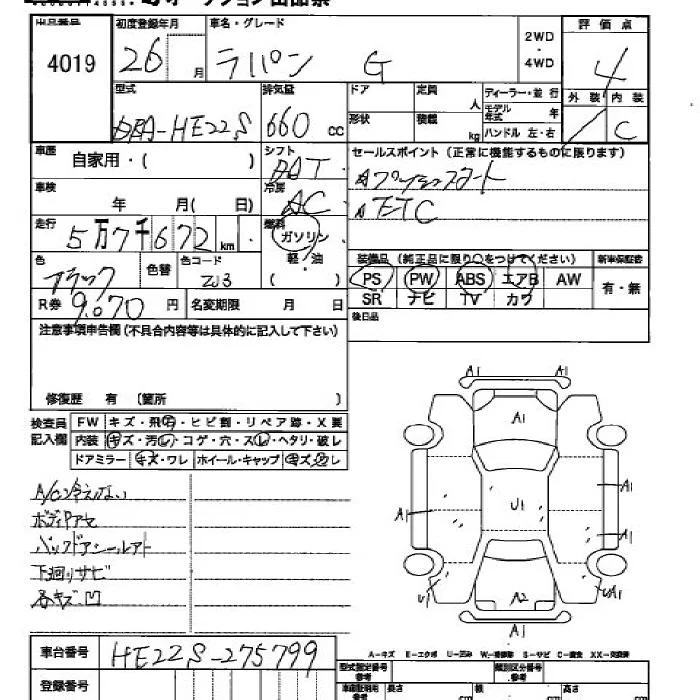 出品番号 初度登録年月 車名・グレード 2WD・4WD 評価点
4019 26 月 ラパン G 4
外装 内装
C
型式 排気量 ドア 定員 人 ディーラー・並行
DBA-HE22S 660 cc 形状 積載 kg モデル年式 年 ハンドル 左・右
車歴 自家用・( ) シフト セールスポイント(正常に機能するものに限ります)
車検 年 月( 日) 冷房 AC
ETC
走行 5万7千672 km 燃料 ガソリン・軽・油 ( )
装備品(純正品に限り○をつけてください) 新車保証書
色 ブラック 色替 色コード ZJ3
PS PW ABS エアB AW 有・無
SR ナビ TV カワ
R券 9.670 円 名変期限 月 日
後日品
注意事項申告欄(不具合内容等は具体的に記入して下さい)
修復歴 有 (箇所 )
検査員記入欄 FW キズ・飛石・ヒビ割・リペア跡・X要
内装 キズ・汚レ・コゲ・穴・スレ・ヘタリ・破レ
ドアミラー キズ・ワレ ホイール・キャップ キズ
A/C冷えない
ボディPアセ
下廻りサビ
各キズ.凹
A1 A1
A1
A1 U1 A1
A1
U1 A2 UA1
A1
A-キズ E-エクボ U-凹み W-補修跡 S-サビ C-腐食 XX-交換済
車台番号 HE22S-275799
登録番号
型式指定番号 参考 類別区分番号 参考
長さ cm 幅 cm 高さ cm